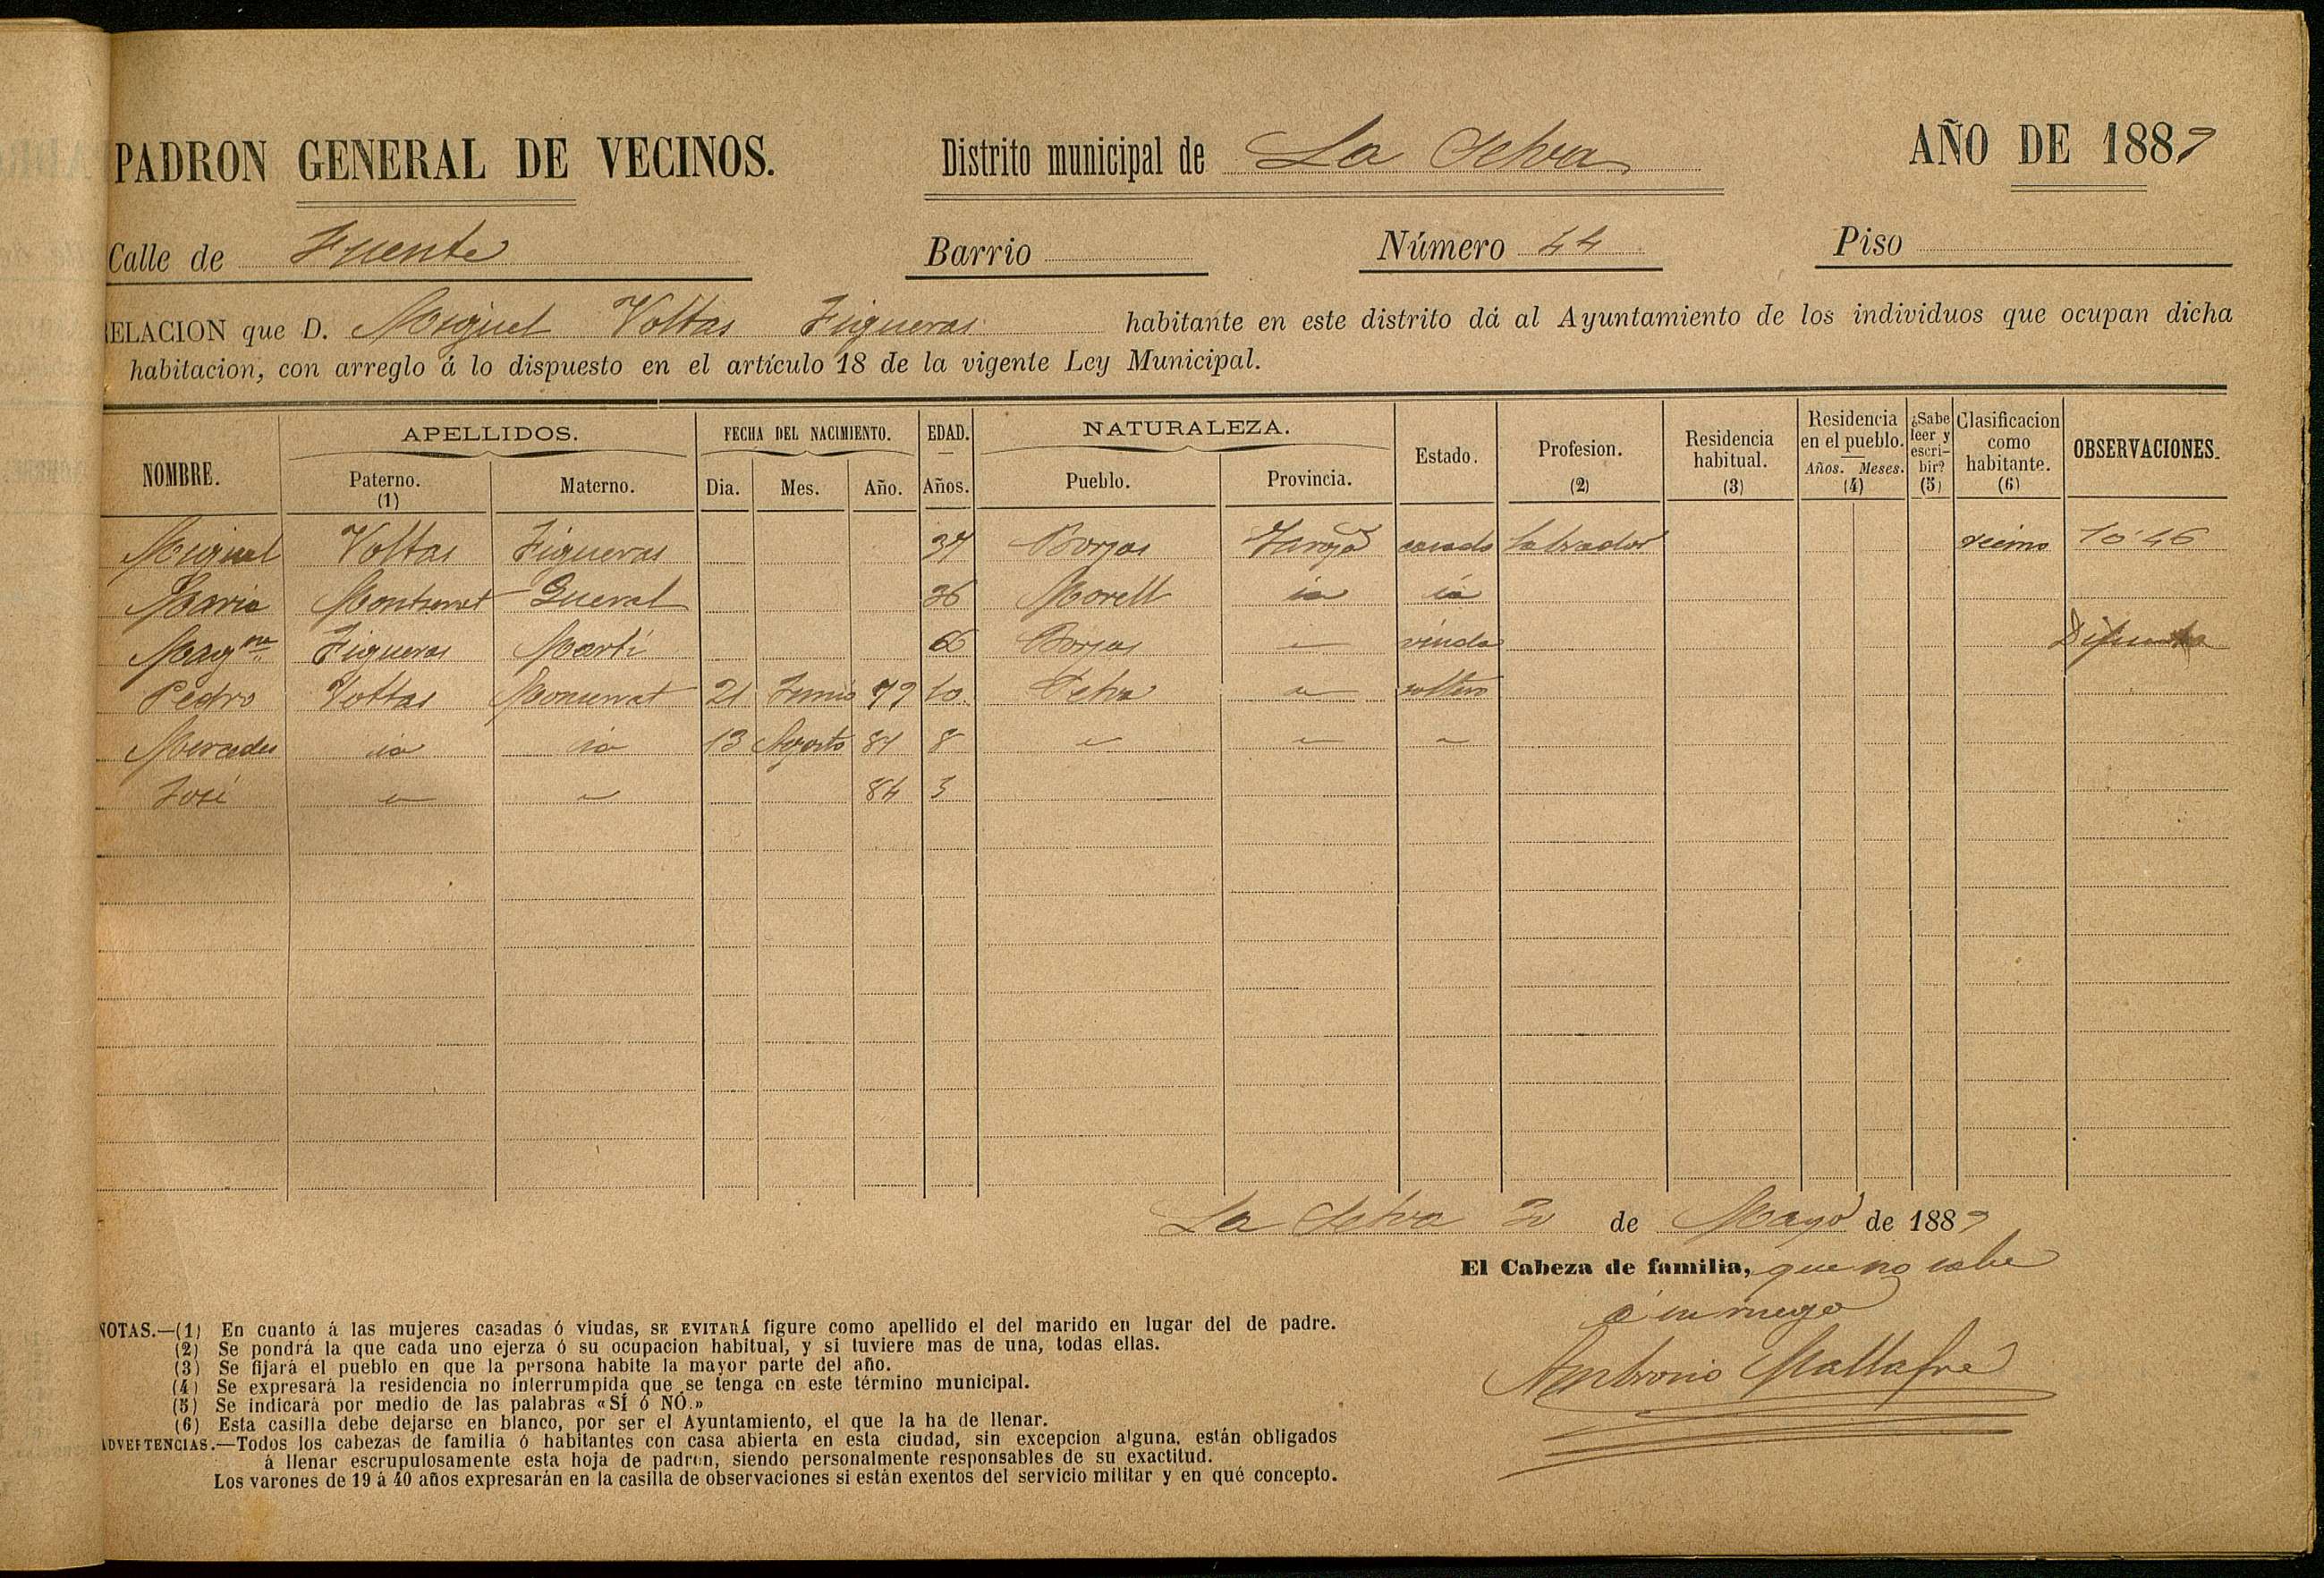 PADRON GENERAL DE VECINOS. Distrito municipal de La Selva AÑO DE 1889
Calle de Fuente Barrio Número 44 Piso
RELACION que D. Miguel Voltas Figueras habitante en este distrito dá al Ayuntamiento de los individuos que ocupan dicha
habitacion, con arreglo á lo dispuesto en el artículo 18 de la vigente Ley Municipal.
NOMBRE. APELLIDOS. Paterno. (1) Materno. FECHA DEL NACIMIENTO. Dia. Mes. Año. EDAD. Años. NATURALEZA. Pueblo. Provincia. Estado. Profesion. (2) Residencia habitual. (3) Residencia en el pueblo. Años. Meses. (4) ¿Sabe leer y escribir? (5) Clasificacion como habitante. (6) OBSERVACIONES.
Miguel Voltas Figueras 37 Borjas casado labrador vecino 10'46
Maria Montserrat 36 Morell id id
Magna Figueras Martí 66 Borjas " viuda Difunta
Pedro Voltas Monserrat 21 Junio 79 10 Selva " soltero
Mercedes id id 13 Agosto 81 8 " " "
José " " 84 5
La Selva de Mayo de 1889
El Cabeza de familia, que no sabe
á su ruego
Ambrosio Mallafré
NOTAS.—(1) En cuanto á las mujeres casadas ó viudas, SE EVITARÁ figure como apellido el del marido en lugar del de padre.
(2) Se pondrá la que cada uno ejerza ó su ocupacion habitual, y si tuviere mas de una, todas ellas.
(3) Se fijará el pueblo en que la persona habite la mayor parte del año.
(4) Se expresará la residencia no interrumpida que se tenga en este término municipal.
(5) Se indicará por medio de las palabras «SÍ ó NÓ.»
(6) Esta casilla debe dejarse en blanco, por ser el Ayuntamiento, el que la ha de llenar.
ADVERTENCIAS.—Todos los cabezas de familia ó habitantes con casa abierta en esta ciudad, sin excepcion alguna, están obligados
á llenar escrupulosamente esta hoja de padron, siendo personalmente responsables de su exactitud.
Los varones de 19 á 40 años expresarán en la casilla de observaciones si están exentos del servicio militar y en qué concepto.